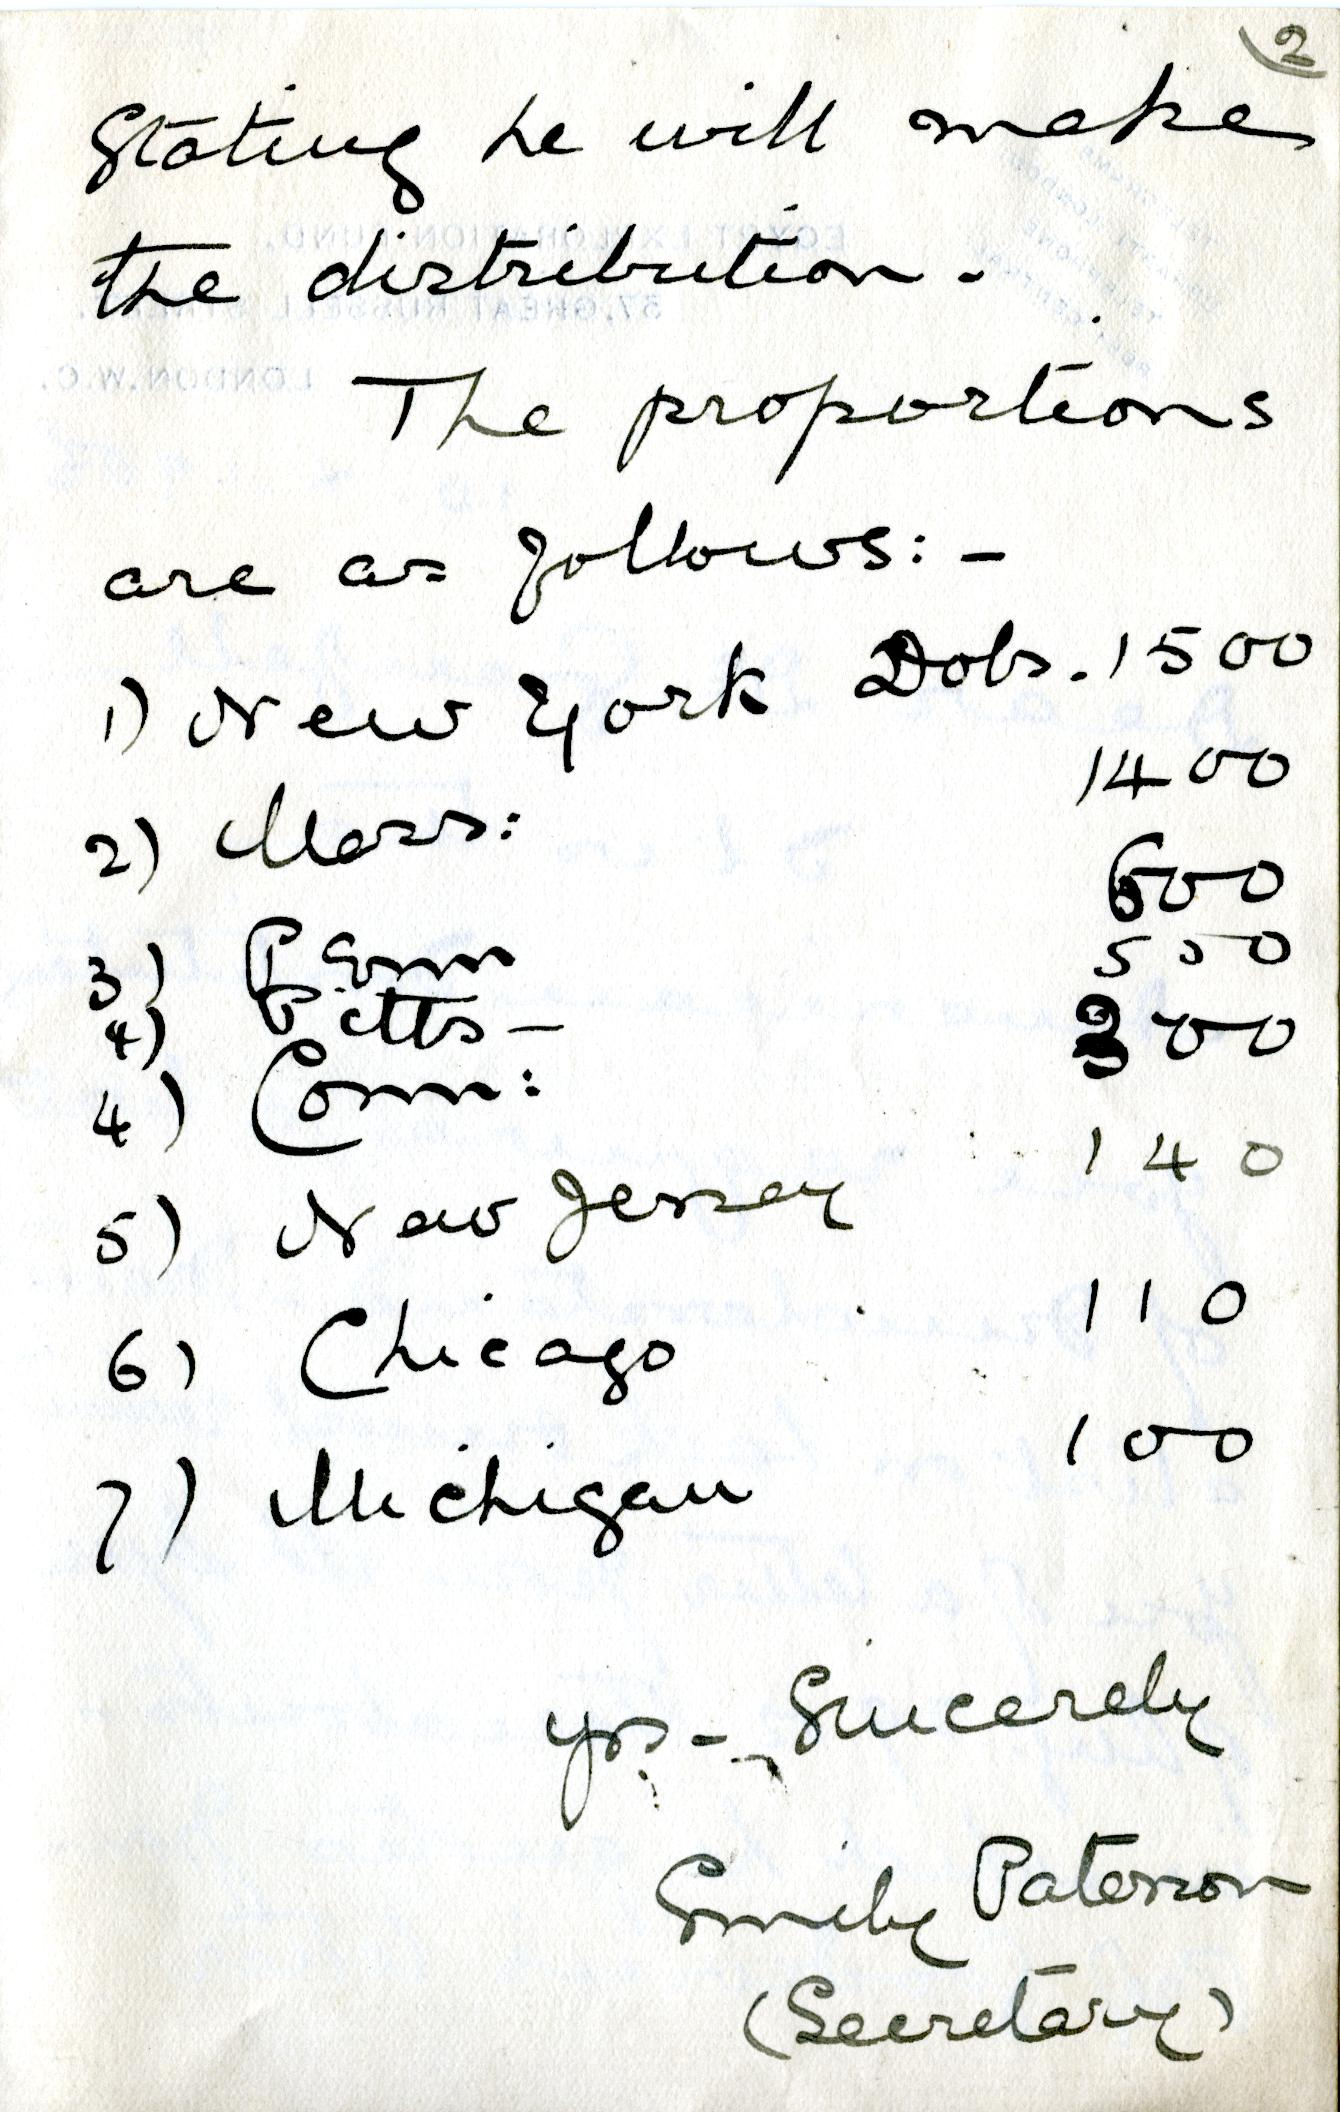 2
Stating he will make
the distribution.
The proportions
are as follows: -
1) New York Dols. 1500
2) Mass: 1400
3) Penn 600
4) Pitts - 500
4) Conn: 300
5) New Jersey 140
6) Chicago 110
7) Michigan 100
Yrs - Sincerely
Emily Paterson
(Secretary)